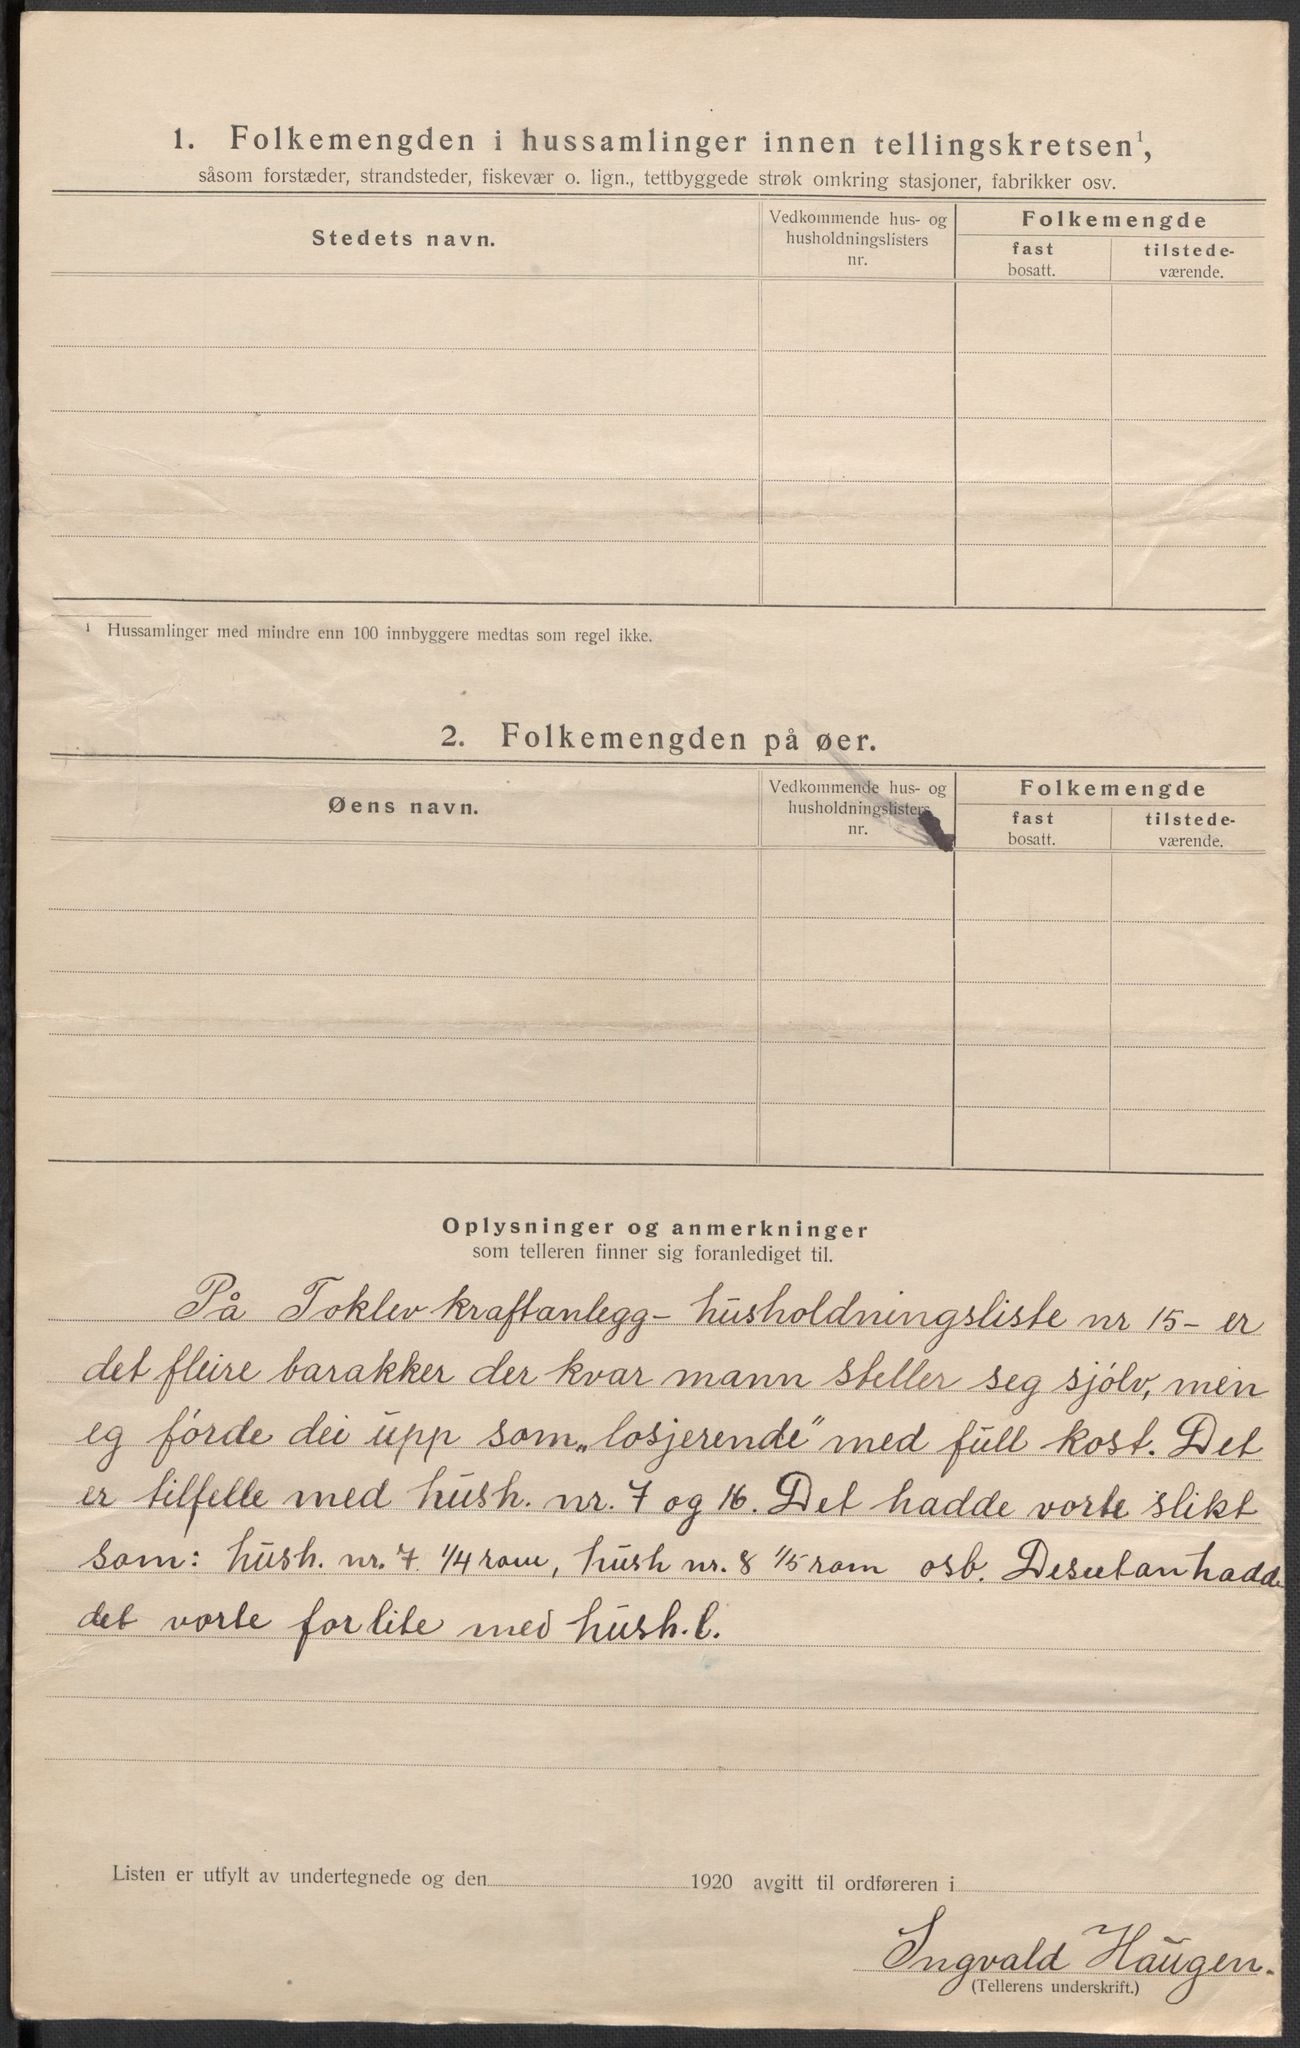 1. Folkemengden i hussamlinger innen tellingskretsen¹,
såsom forstæder, strandsteder, fiskevær o. lign., tettbyggede strøk omkring stasjoner, fabrikker osv.
Stedets navn.
Vedkommende hus- og
husholdningslisters
nr.
Folkemengde
fast
bosatt.
tilstede-
værende.
¹ Hussamlinger med mindre enn 100 innbyggere medtas som regel ikke.
2. Folkemengden på øer.
Øens navn.
Vedkommende hus- og
husholdningslisters
nr.
Folkemengde
fast
bosatt.
tilstede-
værende.
Oplysninger og anmerkninger
som telleren finner sig foranlediget til.
På Toklev kraftanlegg – husholdningsliste nr 15 – er
det fleire barakker der kvar mann steller seg sjólv, men
eg fórde dei upp som „losjerende" med full kost. Det
er tilfelle med hush. nr. 7 og 16. Det hadde vorte slikt
som: hush. nr. 7 1/4 rom, hush nr. 8 1/5 rom osb. Desutan hadde
det vorte for lite med hush.l.
Listen er utfylt av undertegnede og den 1920 avgitt til ordføreren i
Ingvald Haugen.
(Tellerens underskrift.)